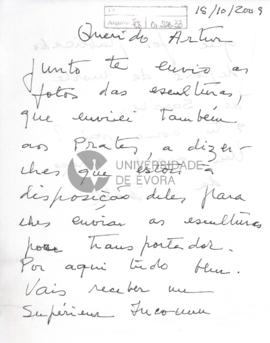 18/10/2009
Querido Artur
Junto te envio as
fotos das esculturas,
que enviei também
aos Prates, a dizer-
-lhes que estou à
UNIVERSIDADE
DE ÉVORA
disposição deles para
lhes enviar as esculturas
por transportador.
Por aqui tudo bem.
Vais receber um
Supérieur Inconnu